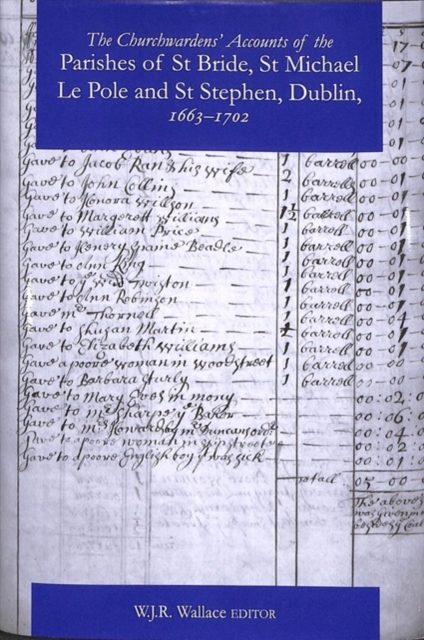 The Churchwardens' Accounts of the
Parishes of St Bride, St Michael
Le Pole and St Stephen, Dublin,
1663–1702
Gave to Jacob Ran & his wife 1 barrell 00-00
Gave to John Collins 2 barrells 00-01
Gave to Honora Willson 1 barrell 00-01
Gave to Margerett Williams 1½ barrell 00-01
Gave to William Price 1 barrell 00-01
Gave to Henery Beadle 1 barrell 00-01
Gave to Ann King 1 barrell 00-01
Gave to Twiston 1 barrell 00-01
Gave to Ann Robinson 1 barrell 00-07
Gave Thornell 1 barrell 00-04
Gave to Susan Martin barrell 00-07
Gave to Elizabeth Williams 1 barrell 00-01
Gave a poore woman in woodstreet 1 barrell 00-00
Gave to Barbara 1 barrell 00-00
Gave to Mary Eves in mony 00:02:
Gave to Sharpe ye Baker 00:06:
Gave to 00:04:
Gave to a poore woman in 00:02
Gave to a poore English boy yt was sick 00:01:
totall 05-00
The above
was given
W.J.R. Wallace EDITOR